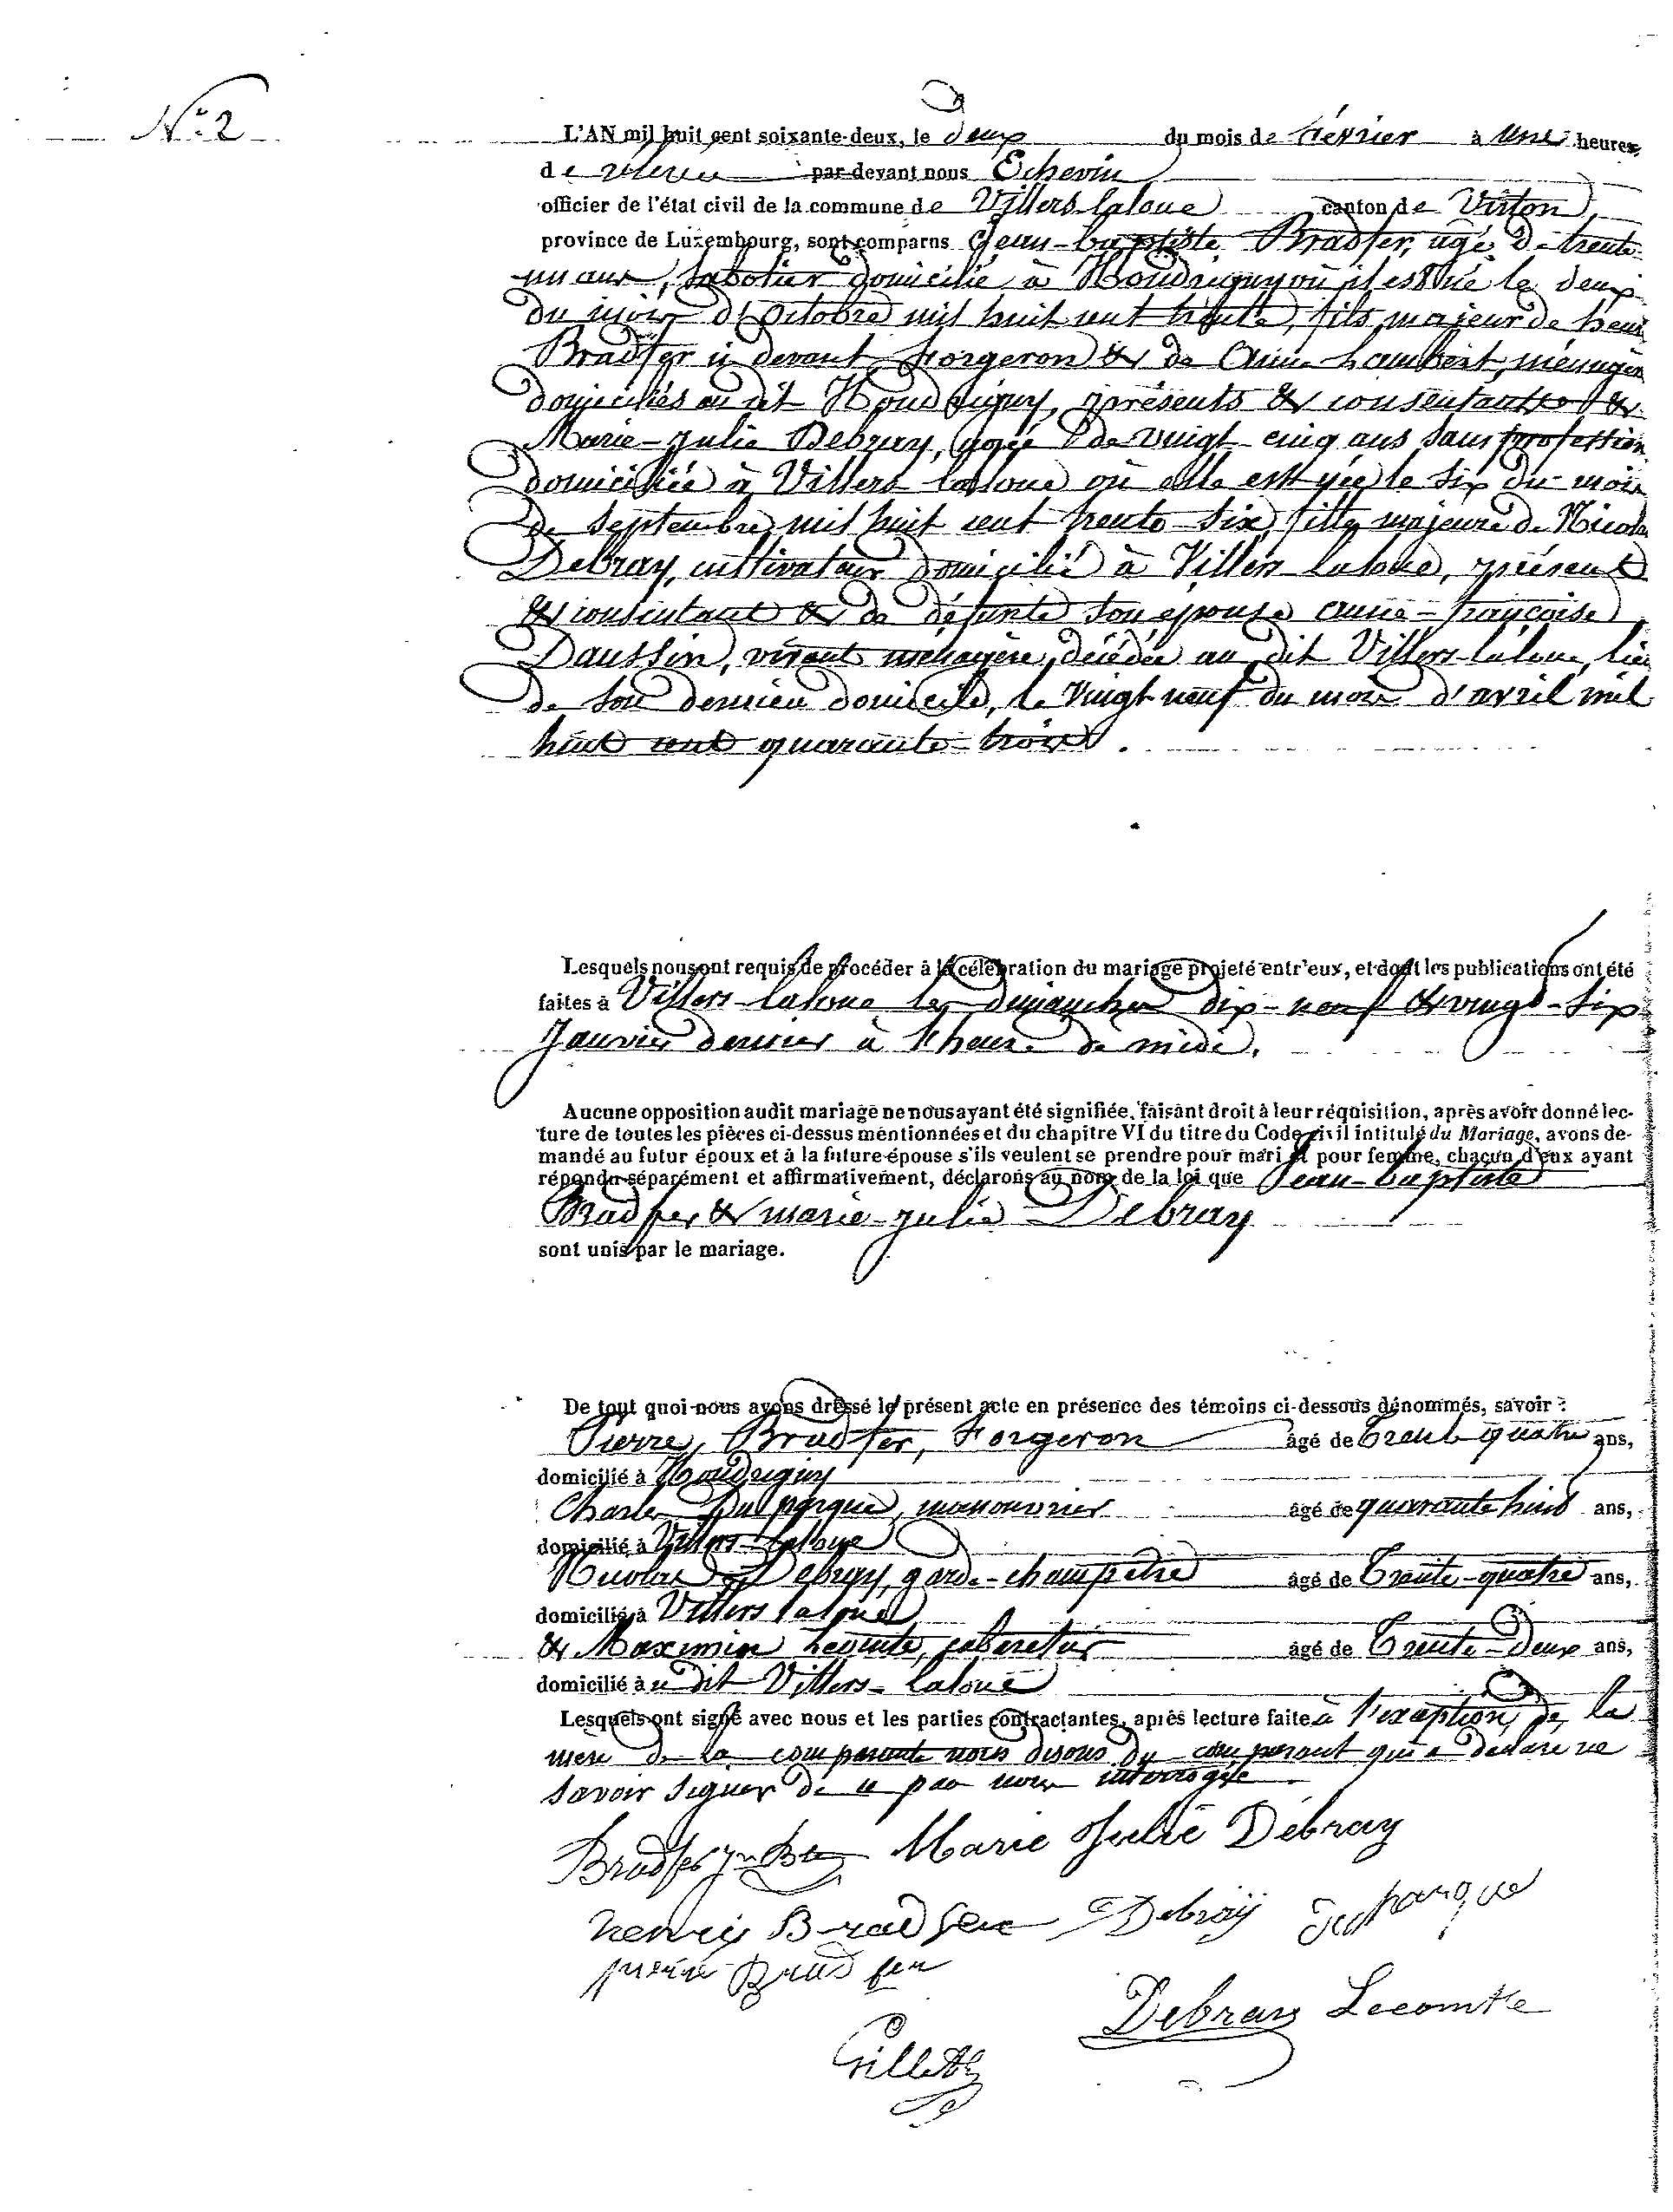 N° 2
L'AN mil huit cent soixante-deux, le deux du mois de février à une heures
de relevée par-devant nous Echevin
officier de l'état civil de la commune de Villers-laloue canton de Virton,
province de Luxembourg, sont comparus Jean-baptiste Bradfer, âgé de trente-
un ans, sabotier domicilié à Houdrigny où il est né le deux
du mois d'octobre mil huit cent trente, fils majeur de henri
Bradfer ci devant forgeron & de Anne Lambert, ménagère
domiciliés au dit Houdrigny, présents & consentants &
Marie-julie Debray, agée de vingt cinq ans sans profession
domiciliée à Villers laloue où elle est née le six du mois
de septembre mil huit cent trente-six, fille majeure de Nicolas
Debray, cultivateur domicilié à Villers laloue, présent
& consentant & de défunte son épouse anne-françoise
Daussin, vivant ménagère, décédée au dit Villers-laloue, lieu
de son dernier domicile, le vingt neuf du mois d'avril mil
huit cent quarante-trois.
Lesquels nous ont requis de procéder à la célébration du mariage projeté entr'eux, et dont les publications ont été
faites à Villers-laloue les dimanches dix-neuf & vingt-six
Janvier dernier à l'heure de midi.
Aucune opposition audit mariage ne nous ayant été signifiée, faisant droit à leur réquisition, après avoir donné lec-
ture de toutes les pièces ci-dessus mentionnées et du chapitre VI du titre du Code civil intitulé du Mariage, avons de-
mandé au futur époux et à la future épouse s'ils veulent se prendre pour mari et pour femme, chacun d'eux ayant
répondu séparément et affirmativement, déclarons au nom de la loi que Jean-baptiste
Bradfer & marie-julie Debray
sont unis par le mariage.
De tout quoi nous avons dressé le présent acte en présence des témoins ci-dessous dénommés, savoir :
Pierre Bradfer, Forgeron âgé de Trente quatre ans,
domicilié à Houdrigny
Charles Duparque, manouvrier âgé de quarante huit ans,
domicilié à Villers-laloue
Nicolas Debray, garde-champêtre âgé de Trente-quatre ans,
domicilié à Villers laloue
& Maximin Lecomte, cabaretier âgé de Trente-Deux ans,
domicilié au dit Villers-laloue
Lesquels ont signé avec nous et les parties contractantes, après lecture faite à l'exception de la
mère de la comparante nous disons du comparant qui a déclaré ne
savoir signer de ce par nous interrogée
Bradfer Jn Bte Marie Julie Debray
henry Bradfer Debray Duparque
pierre Bradfer
Debray Lecomte
Gillet